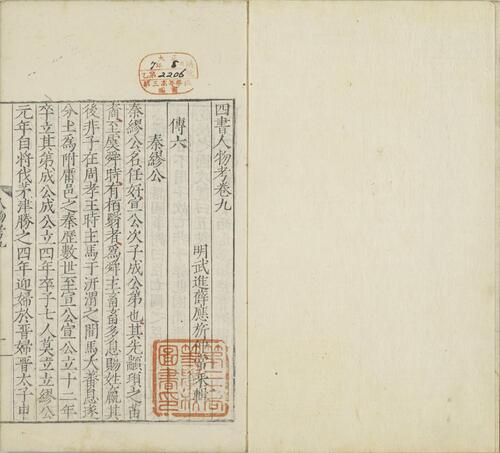 四書人物考卷九
明武進薛應旂
采輯
傳六
秦繆公
秦繆公名任好宣公次子成公弟也其先顓頊之苗
裔至虞舜時有栢翳者爲舜主畜畜多息賜姓嬴其
後非子在周孝王時主馬于汧渭之間馬大蕃息遂
分土爲附庸邑之秦歷數世至宣公宣公立十二年
卒立其弟成公成公立四年卒子七人莫立立繆公
元年自將伐茅津勝之四年迎婦於晉婦晉太子申
2206
圖書